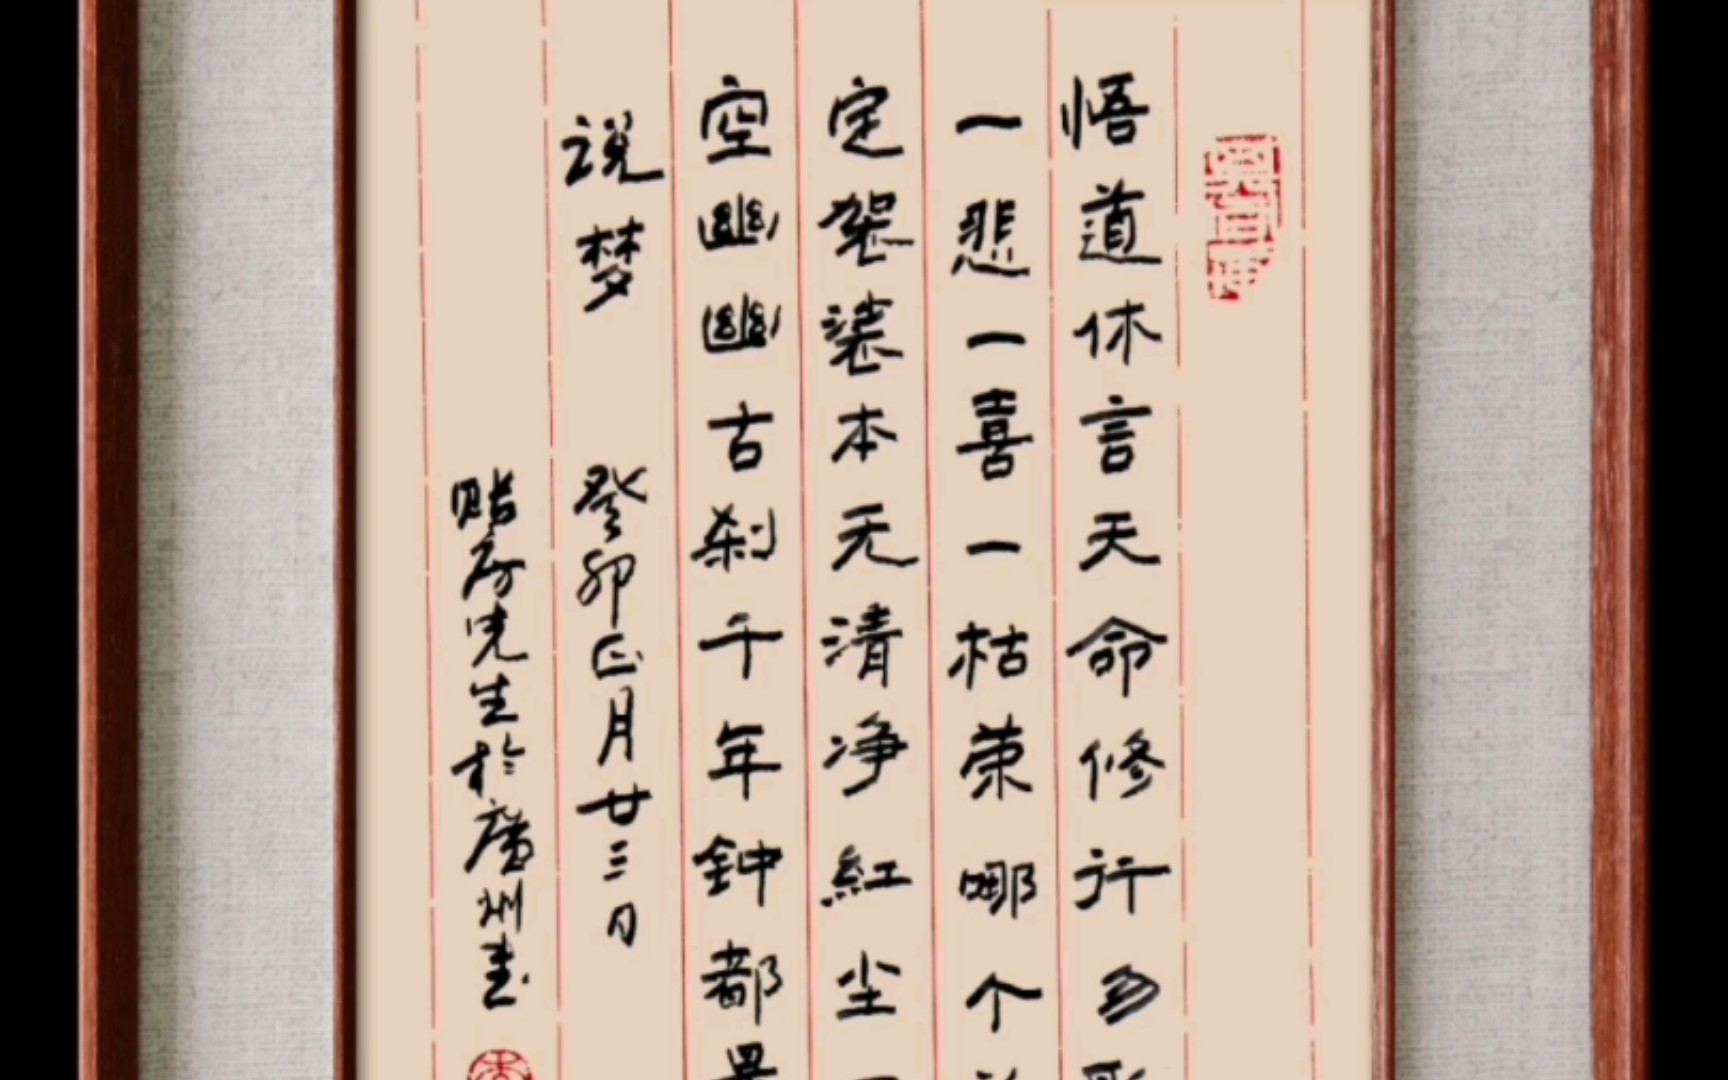 悟道休言天命修行勿
一悲一喜一枯荣哪个
定袈裟本无清净红尘
空幽幽古刹千年钟都
说梦 癸卯正月廿三日
贻房先生於廣州書